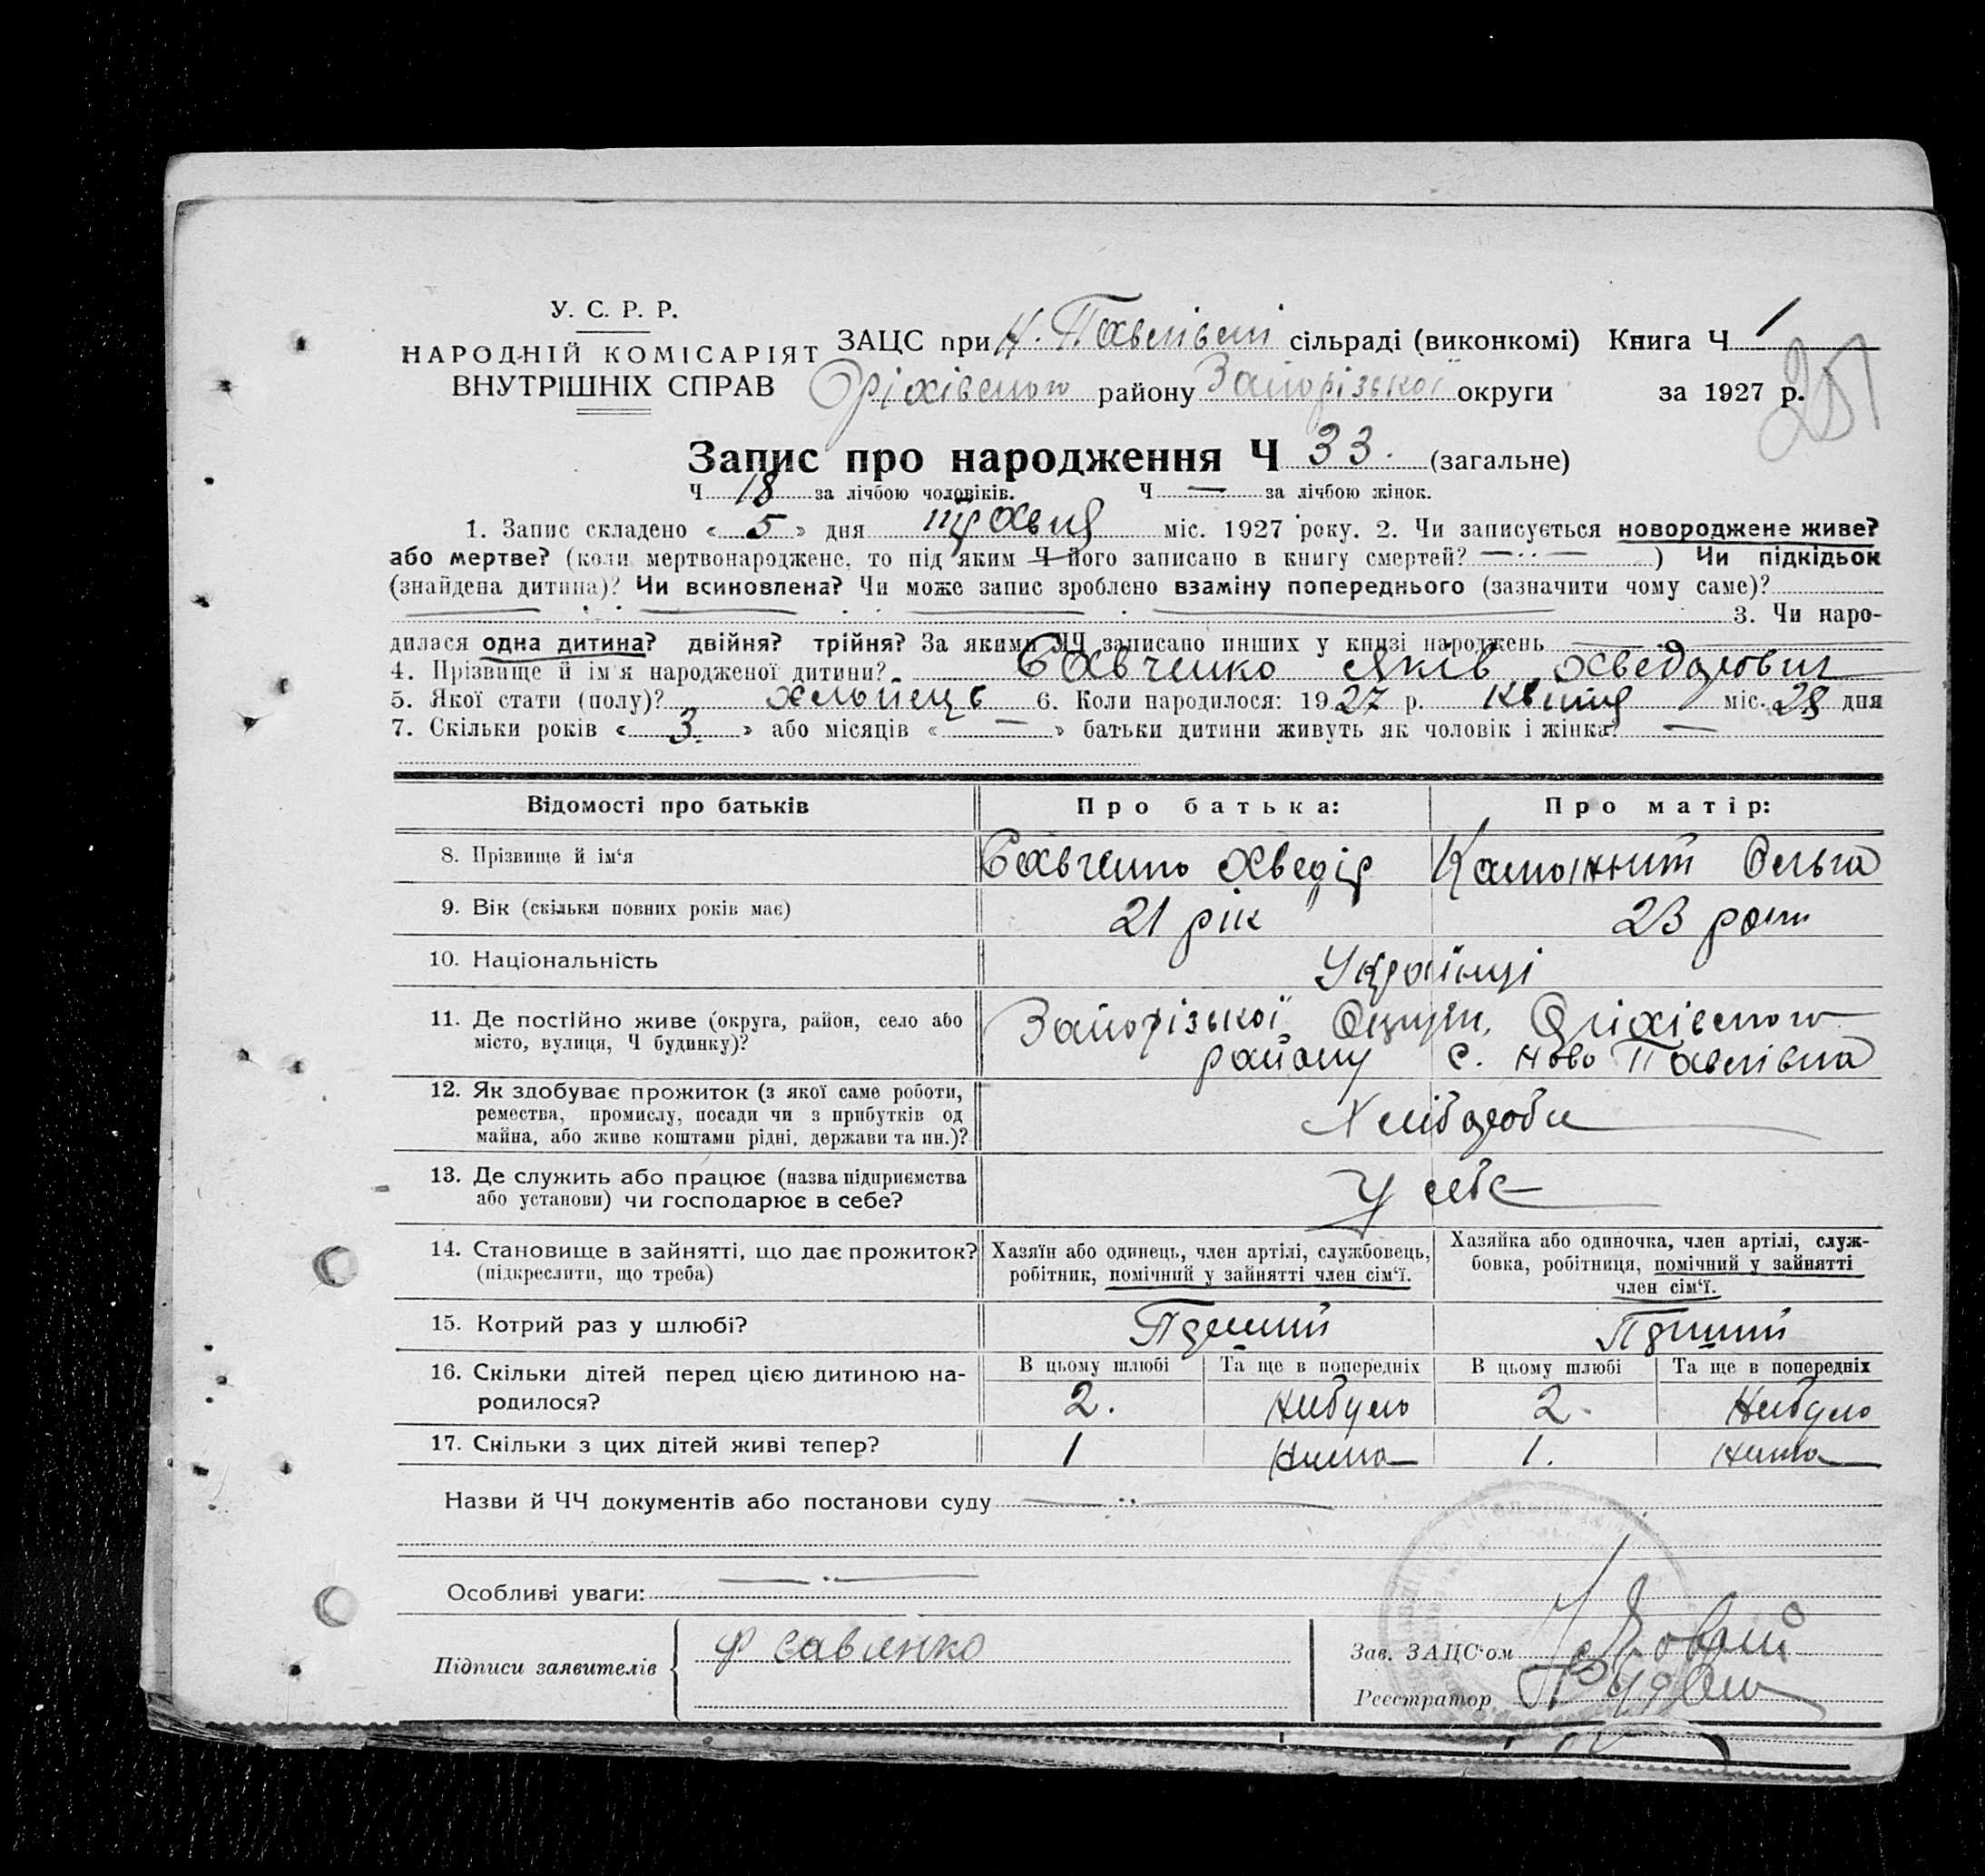 У. С. Р. Р.
НАРОДНІЙ КОМІСАРІЯТ
ВНУТРІШНІХ СПРАВ
ЗАЦС при Н. Павлівскі сільраді (виконкомі) Книга Ч 1
Оріхівського району Запорізької округи за 1927 р.
251
Запис про народження Ч 33. (загальне)
Ч 18 за лічбою чоловіків. Ч — за лічбою жінок.
1. Запис складено « 5 » дня травня міс. 1927 року. 2. Чи записується новороджене живе?
або мертве? (коли мертвонароджене, то під яким Ч його записано в книгу смертей? — ·· — ) Чи підкідьок
(знайдена дитина)? Чи всиновлена? Чи може запис зроблено взаміну попереднього (зазначити чому саме)?
3. Чи наро-
дилася одна дитина? двійня? трійня? За якими ЧЧ записано инших у книзі народжень
4. Прізвище й ім'я народженої дитини? Савченко Яків Хведорович
5. Якої стати (полу)? хлопець 6. Коли народилося: 1927 р. квітня міс. 28 дня
7. Скільки років « 3. » або місяців « — » батьки дитини живуть як чоловік і жінка? —
Відомості про батьків Про батька: Про матір:
8. Прізвище й ім'я Савченко Хведір Ольга
9. Вік (скільки повних років має) 21 рік 23 роки
10. Національність Українці
11. Де постійно живе (округа, район, село або Запорізької Округи, Оріхівського
місто, вулиця, Ч будинку)? району с. Ново Павлівка
12. Як здобуває прожиток (з якої саме роботи,
ремества, промислу, посади чи з прибутків од Хлібороби
майна, або живе коштами рідні, держави та ин.)?
13. Де служить або працює (назва підприємства У себе
або установи) чи господарює в себе?
14. Становище в зайнятті, що дає прожиток? Хазяїн або одинець, член артілі, службовець, Хазяйка або одиночка, член артілі, служ-
(підкреслити, що треба) робітник, помічний у зайнятті член сім'ї. бовка, робітниця, помічний у зайнятті
член сім'ї.
15. Котрий раз у шлюбі? Перший Перший
16. Скільки дітей перед цією дитиною на- В цьому шлюбі Та ще в попередніх В цьому шлюбі Та ще в попередніх
родилося? 2. Небуло 2. Небуло
17. Скільки з цих дітей живі тепер? 1 Нима 1. Нима
Назви й ЧЧ документів або постанови суду — ·· —
Особливі уваги: — · —
Підписи заявителів Ф Савченко
Зав. ЗАЦС'ом
Реєстратор